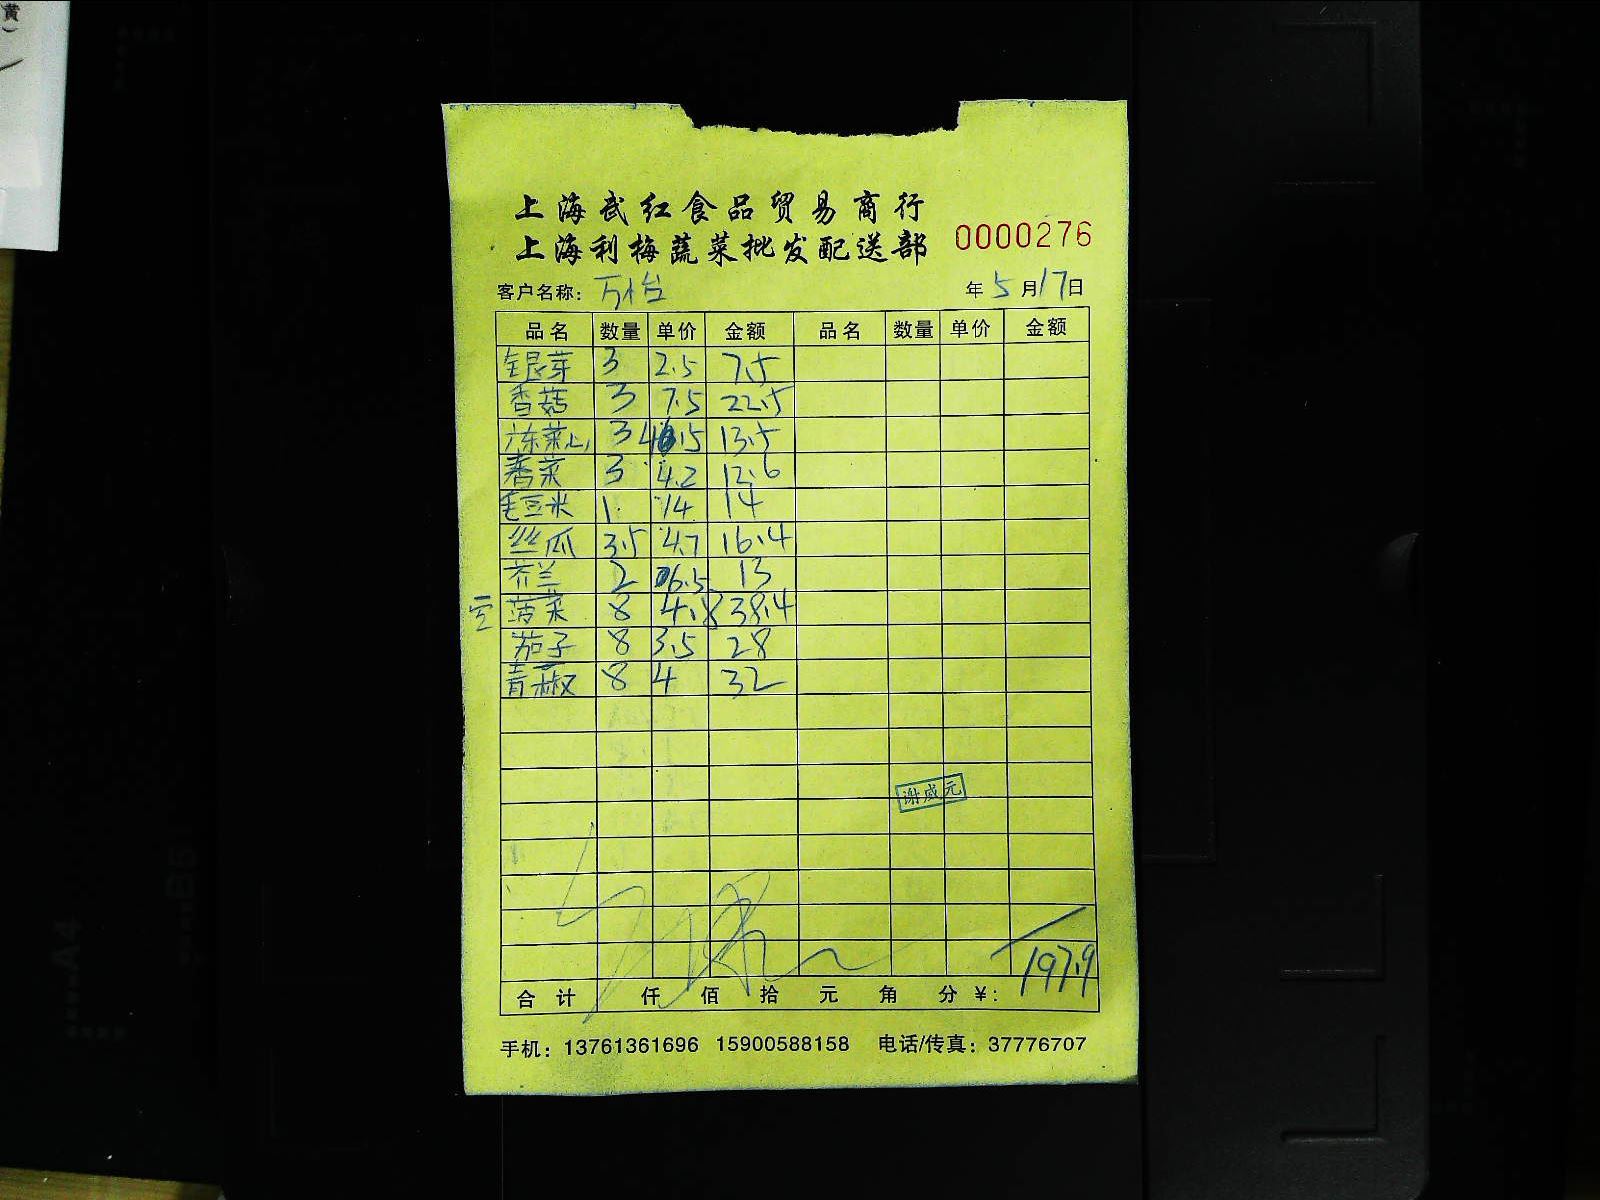 黄
上海武红食品贸易商行
上海利梅蔬菜批发配送部 0000276
客户名称: 万怡 年5月17日
品名 数量 单价 金额 品名 数量 单价 金额
银芽 3 2.5 7.5
香菇 3 7.5 22.5
广东菜心 3 4.5 13.5
香菜 3 4.2 12.6
毛豆米 1 14 14
丝瓜 3.5 4.7 16.4
芥兰 2 6.5 13
菠菜 8 4.8 38.4
茄子 8 3.5 28
青椒 8 4 32
谢成元
197.9
合计 仟 佰 拾 元 角 分 ¥:
手机: 13761361696 15900588158 电话/传真: 37776707
A4
B5